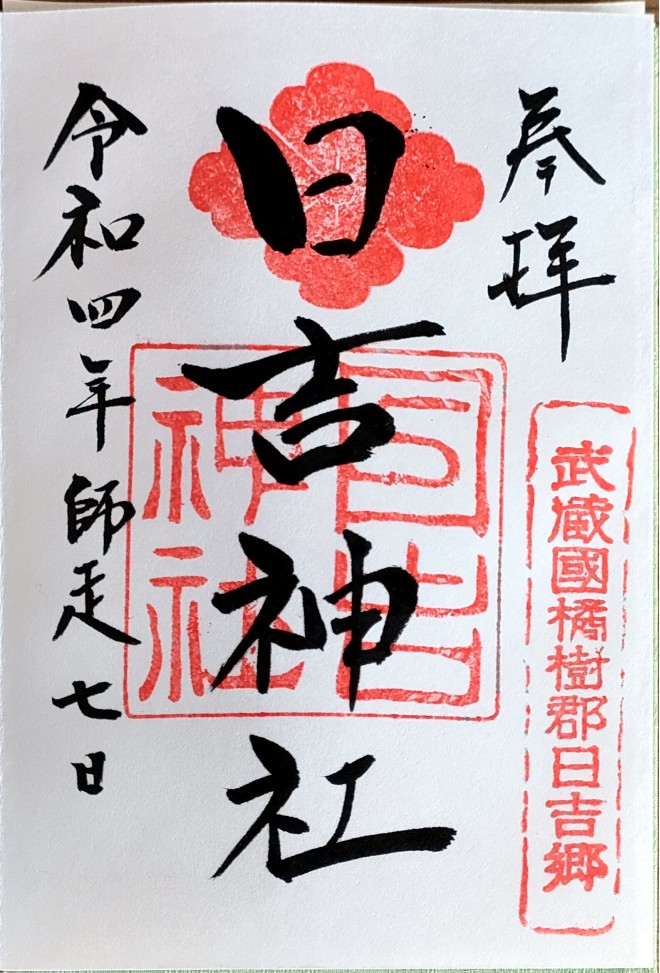 奉拝
武蔵國橘樹郡日吉郷
日吉神社
日吉
神社
令和四年師走七日